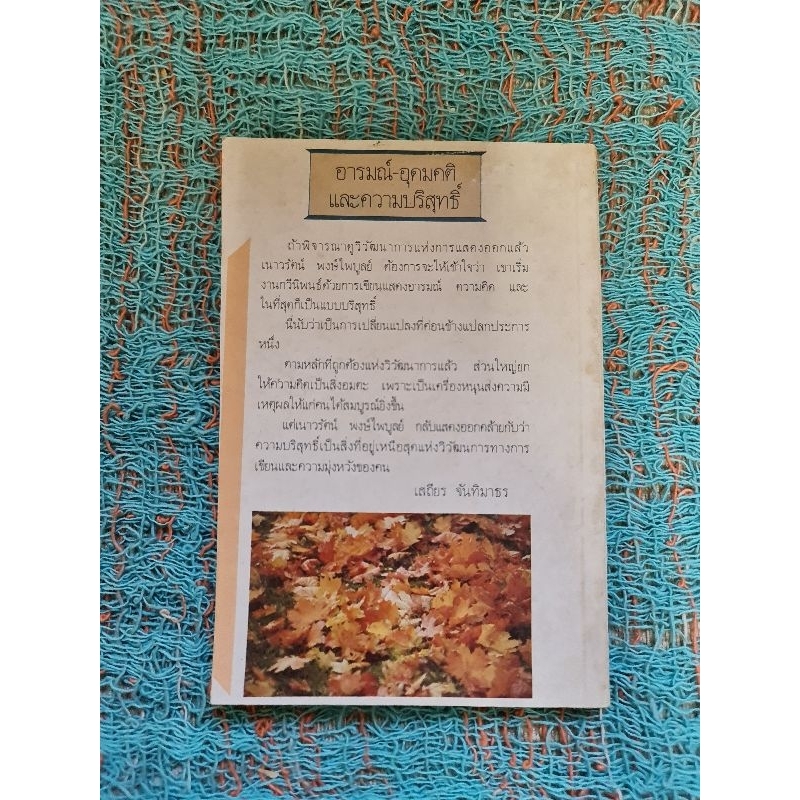 อารมณ์-อุดมคติ
และความบริสุทธิ์
ถ้าพิจารณาดูวิวัฒนาการแห่งการแสดงออกแล้ว
เนาวรัตน์ พงษ์ไพบูลย์ ต้องการจะให้เข้าใจว่า เขาเริ่ม
งานกวีนิพนธ์ด้วยการเขียนแสดงอารมณ์ ความคิด และ
ในที่สุดก็เป็นแบบบริสุทธิ์
นี่นับว่าเป็นการเปลี่ยนแปลงที่ค่อนข้างแปลกประการ
หนึ่ง
ตามหลักที่ถูกต้องแห่งวิวัฒนาการแล้ว ส่วนใหญ่ยก
ให้ความคิดเป็นสิ่งอมตะ เพราะเป็นเครื่องหนุนส่งความมี
เหตุผลให้แก่คนได้สมบูรณ์ยิ่งขึ้น
แต่เนาวรัตน์ พงษ์ไพบูลย์ กลับแสดงออกคล้ายกับว่า
ความบริสุทธิ์เป็นสิ่งที่อยู่เหนือสุดแห่งวิวัฒนการทางการ
เขียนและความมุ่งหวังของคน
เสถียร จันทิมาธร